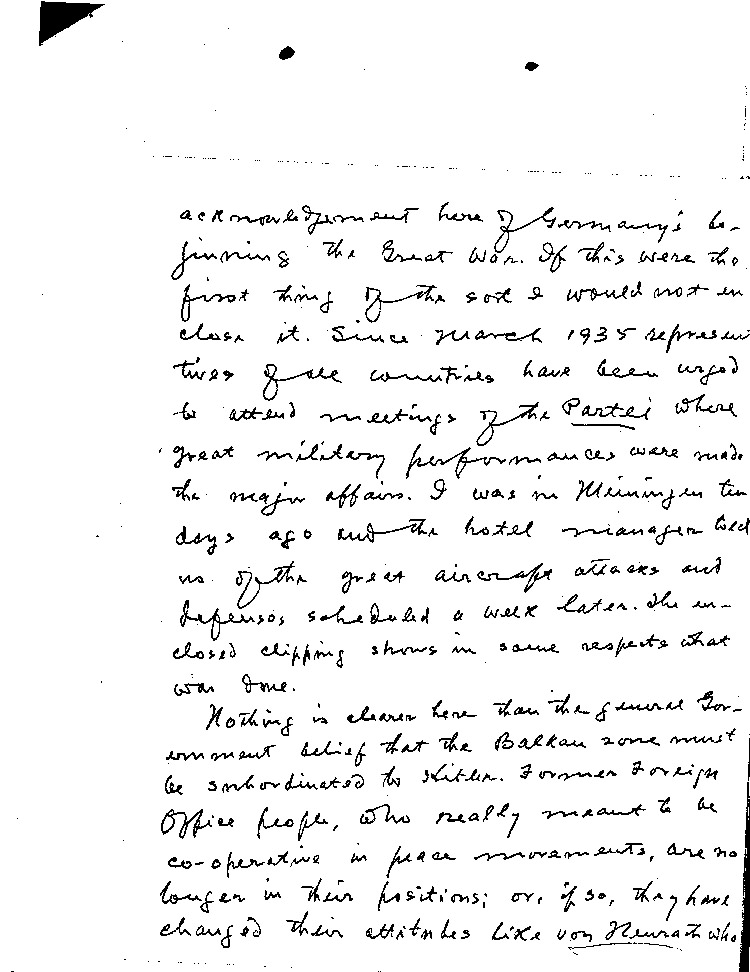 acknowledgement here of Germany's be-
ginning the Great War. If this were the
first thing of the sort I would not en
close it. Since March 1935 represen
tives of all countries have been urged
to attend meetings of the Partei where
great military performances were made
the major affairs. I was in Meiningen ten
days ago and the hotel manager told
us of the great aircraft attacks and
defenses scheduled a week later. The en-
closed clipping shows in some respects what
was done.
Nothing is clearer here than the general Gov-
ernment belief that the Balkan zone must
be subordinated to Hitler. Former Foreign
Office people, who really meant to be
co-operative in peace movements, are no
longer in their positions; or, if so, they have
changed their attitudes like von Neurath who